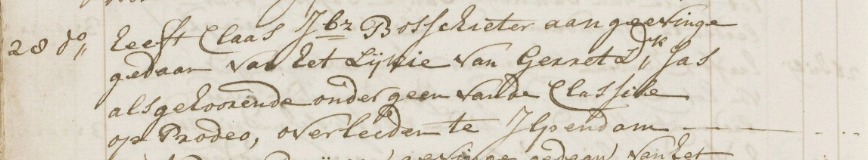 28 do heeft Claas Jbz Bosschieter aangeevinge
gedaan van het Lijkie van Gerret Dk Jas
als gehoorende onder geen van de Classise
op Prodeo, overleiden te Ilpendam
gedaan van het